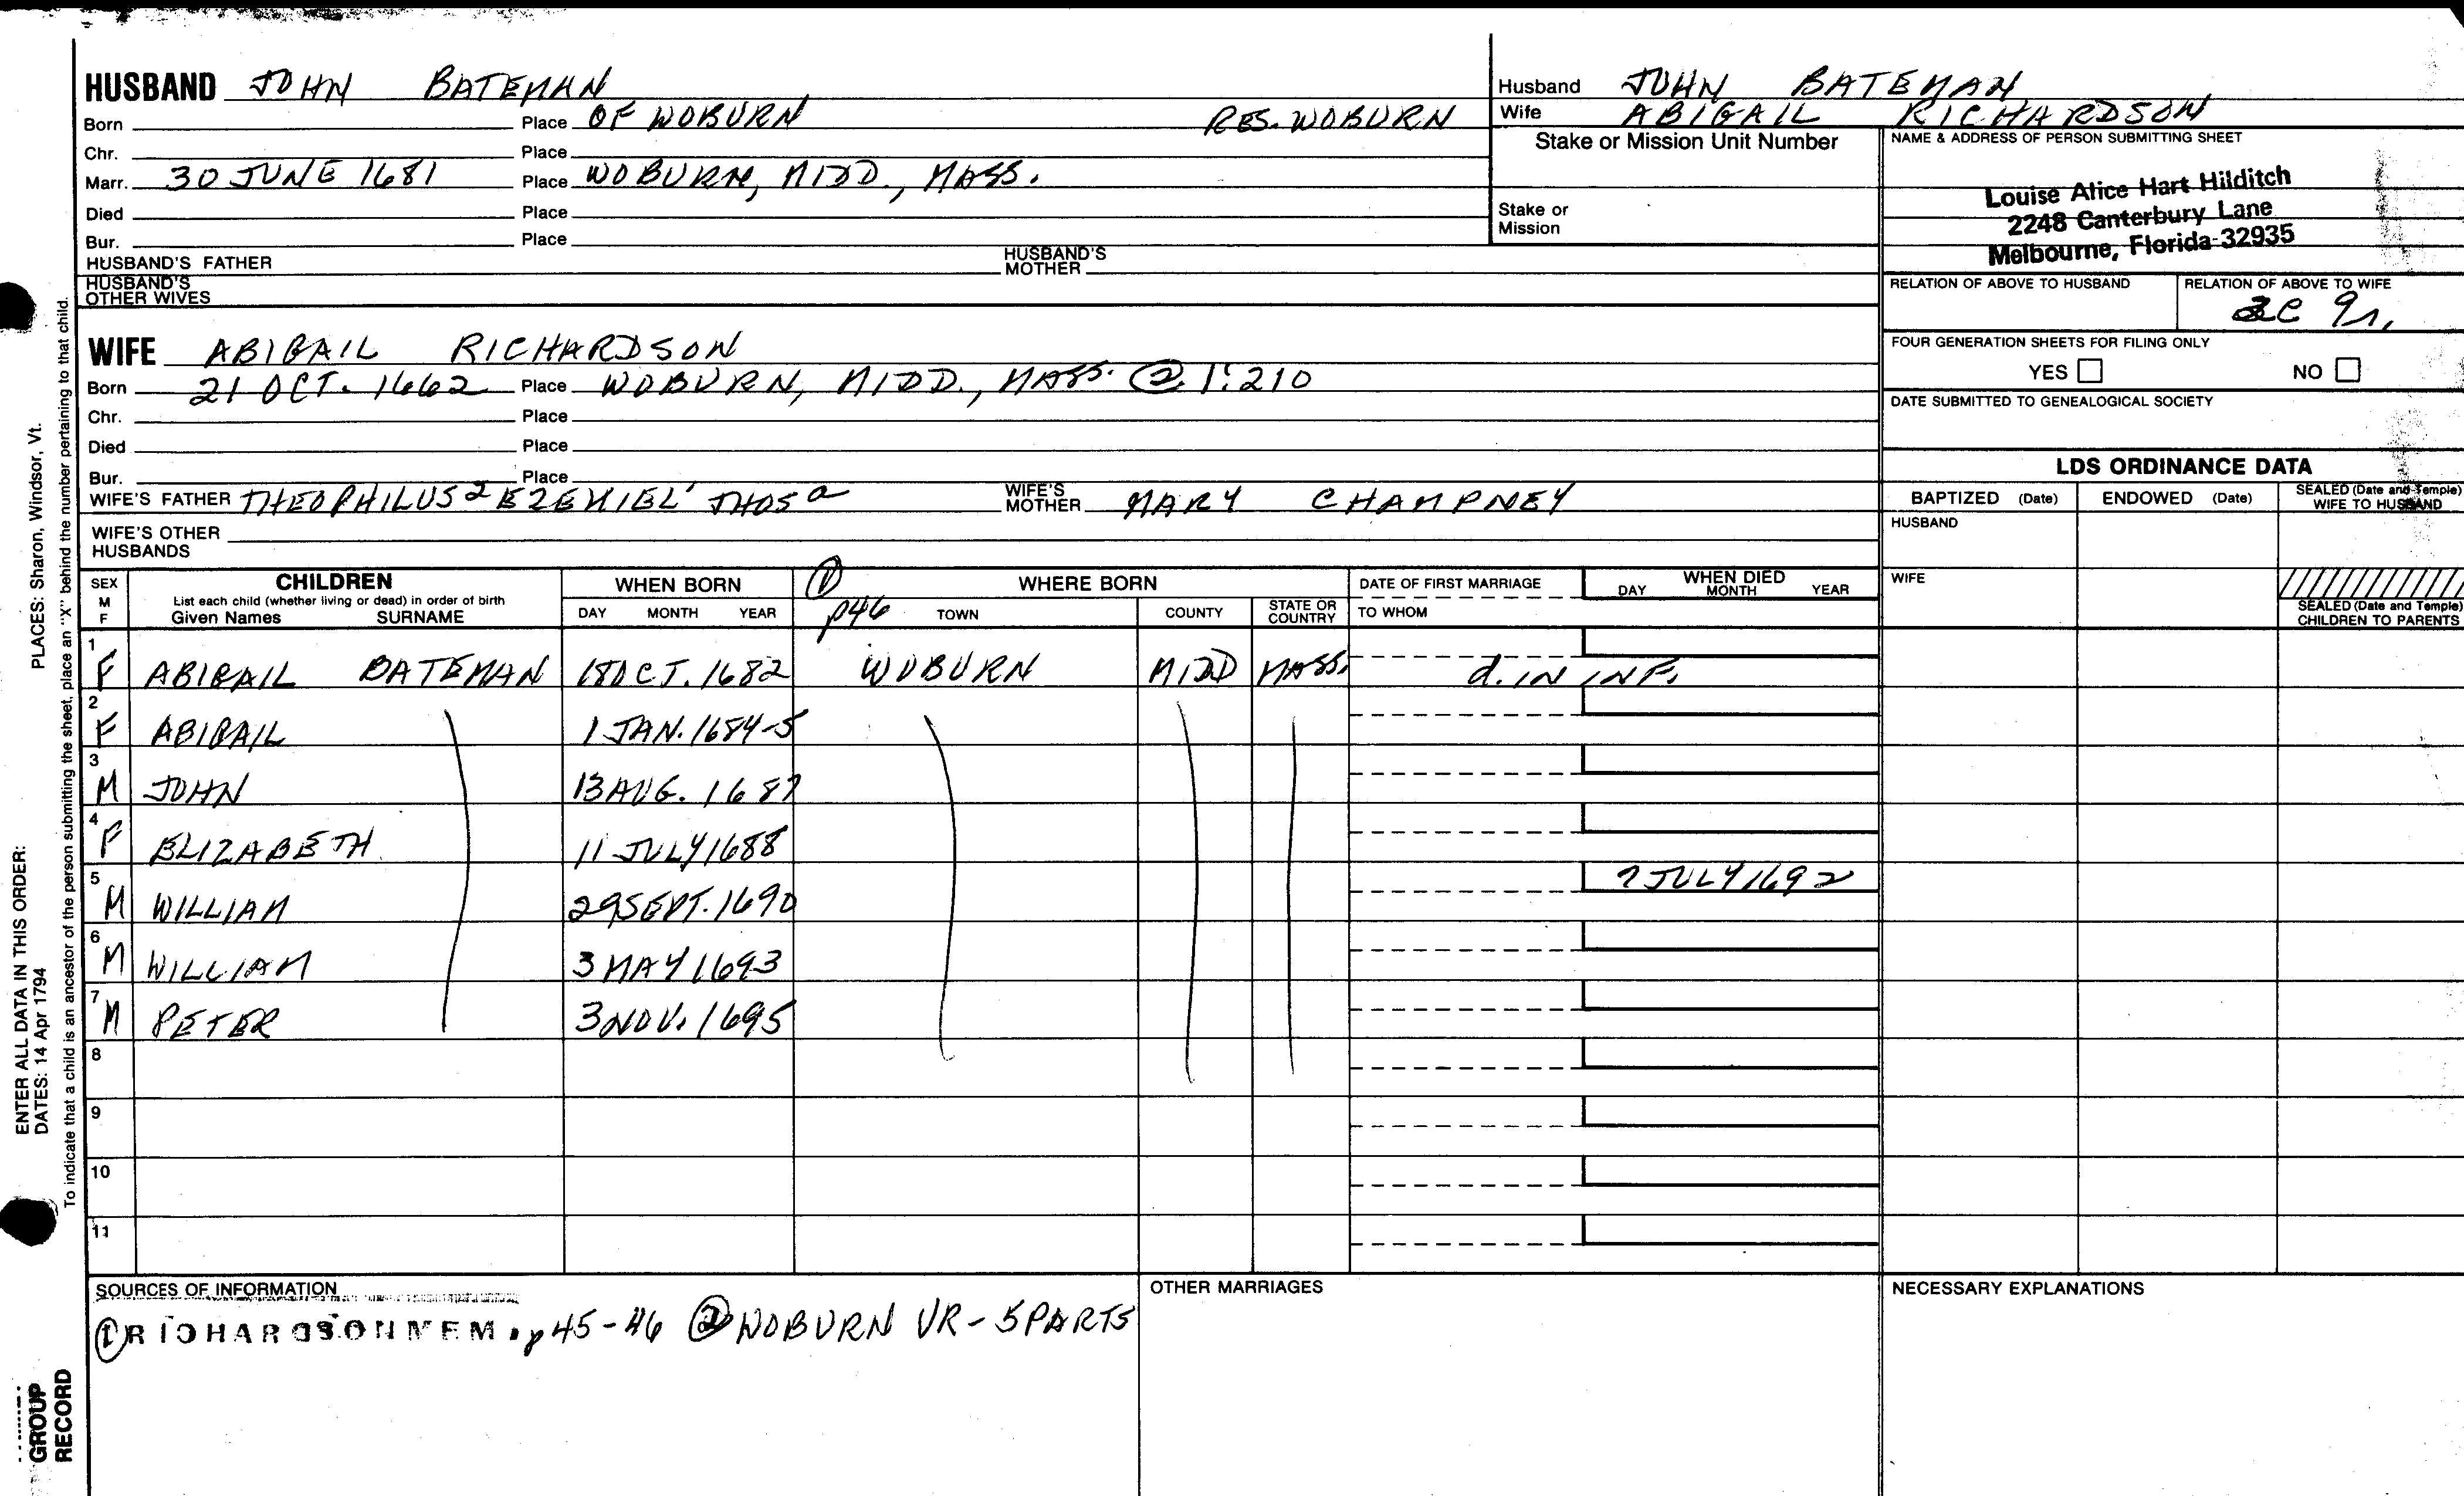 HUSBAND JOHN BATEMAN
Born Place OF WOBURN RES. WOBURN
Chr. Place
Marr. 30 JUNE 1681 Place WOBURN, MIDD., MASS.
Died Place
Bur. Place
HUSBAND'S FATHER HUSBAND'S MOTHER
HUSBAND'S OTHER WIVES
Husband JOHN BATEMAN
Wife ABIGAIL RICHARDSON
Stake or Mission Unit Number
Stake or Mission
NAME & ADDRESS OF PERSON SUBMITTING SHEET
Louise Alice Hart Hilditch
2248 Canterbury Lane
Melbourne, Florida 32935
RELATION OF ABOVE TO HUSBAND RELATION OF ABOVE TO WIFE
FOUR GENERATION SHEETS FOR FILING ONLY
YES NO
DATE SUBMITTED TO GENEALOGICAL SOCIETY
WIFE ABIGAIL RICHARDSON
Born 21 OCT. 1662 Place WOBURN, MIDD., MASS. ② 1:210
Chr. Place
Died Place
Bur. Place
WIFE'S FATHER THEOPHILUS² EZEKIEL¹ THOSᵃ WIFE'S MOTHER MARY CHAMPNEY
WIFE'S OTHER HUSBANDS
LDS ORDINANCE DATA
BAPTIZED (Date) ENDOWED (Date) SEALED (Date and Temple) WIFE TO HUSBAND
HUSBAND
WIFE
SEALED (Date and Temple) CHILDREN TO PARENTS
SEX M F
CHILDREN
List each child (whether living or dead) in order of birth
Given Names SURNAME
WHEN BORN
DAY MONTH YEAR
① p46
WHERE BORN
TOWN COUNTY STATE OR COUNTRY
DATE OF FIRST MARRIAGE
TO WHOM
WHEN DIED
DAY MONTH YEAR
1 F ABIGAIL BATEMAN 18 OCT. 1682 WOBURN MIDD MASS. d. IN INF.
2 F ABIGAIL 1 JAN. 1684-5
3 M JOHN 13 AUG. 1687
4 F ELIZABETH 11 JULY 1688
5 M WILLIAM 29 SEPT. 1690 7 JULY 1692
6 M WILLIAM 3 MAY 1693
7 M PETER 3 NOV. 1695
8
9
10
11
SOURCES OF INFORMATION
① RICHARDSON MEM. p45-46 ② WOBURN VR - 5 PARTS
OTHER MARRIAGES
NECESSARY EXPLANATIONS
PLACES: Sharon, Windsor, Vt.
To indicate that a child is an ancestor of the person submitting the sheet, place an "X" behind the number pertaining to that child.
ENTER ALL DATA IN THIS ORDER:
DATES: 14 Apr 1794
GROUP
RECORD